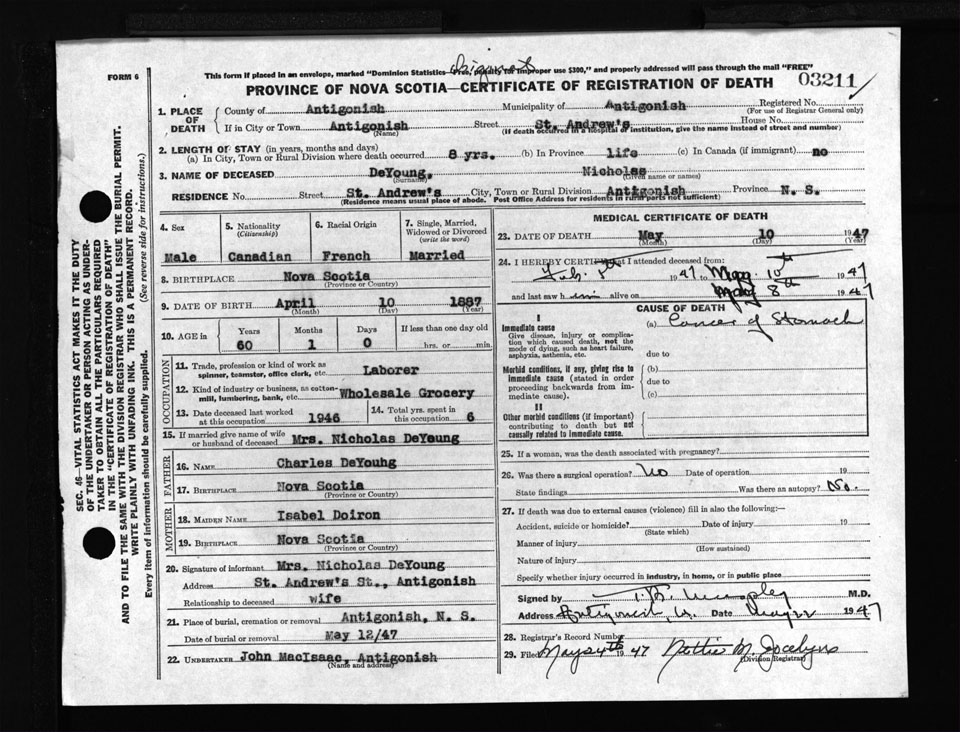 Antigonish
FORM 6
This form if placed in an envelope, marked "Dominion Statistics—Free, penalty for improper use $300," and properly addressed will pass through the mail "FREE"
PROVINCE OF NOVA SCOTIA—CERTIFICATE OF REGISTRATION OF DEATH
03211
1. PLACE OF DEATH
County of Antigonish Municipality of Antigonish Registered No.
(For use of Registrar General only)
If in City or Town Antigonish Street St. Andrew's House No.
(Name) (If death occurred in a hospital or institution, give the name instead of street and number)
2. LENGTH OF STAY (in years, months and days)
(a) In City, Town or Rural Division where death occurred 8 yrs. (b) In Province life (c) In Canada (if immigrant) no
3. NAME OF DECEASED DeYoung, Nicholas
(Surname) (Given name or names)
RESIDENCE No. Street St. Andrew's City, Town or Rural Division Antigonish Province N. S.
(Residence means usual place of abode. Post Office Address for residents in rural parts not sufficient)
4. Sex
Male
5. Nationality
(Citizenship)
Canadian
6. Racial Origin
French
7. Single, Married, Widowed or Divorced
(write the word)
Married
8. BIRTHPLACE Nova Scotia
(Province or Country)
9. DATE OF BIRTH April 10 1887
(Month) (Day) (Year)
10. AGE in
Years Months Days If less than one day old
60 1 0 hrs. or min.
OCCUPATION
11. Trade, profession or kind of work as
spinner, teamster, office clerk, etc. Laborer
12. Kind of industry or business, as cotton-
mill, lumbering, bank, etc. Wholesale Grocery
13. Date deceased last worked
at this occupation 1946
14. Total yrs. spent in
this occupation 6
15. If married give name of wife
or husband of deceased Mrs. Nicholas DeYoung
FATHER
16. NAME Charles DeYouhg
17. BIRTHPLACE Nova Scotia
(Province or Country)
MOTHER
18. MAIDEN NAME Isabel Doiron
19. BIRTHPLACE Nova Scotia
(Province or Country)
20. Signature of informant Mrs. Nicholas DeYoung
Address St. Andrew's St., Antigonish
Relationship to deceased wife
21. Place of burial, cremation or removal Antigonish, N. S.
Date of burial or removal May 12/47
22. UNDERTAKER John MacIsaac, Antigonish
(Name and address)
MEDICAL CERTIFICATE OF DEATH
23. DATE OF DEATH May 10 1947
(Month) (Day) (Year)
24. I HEREBY CERTIFY that I attended deceased from:
Feb. 1947 to May 10th 1947
and last saw him alive on May 8th 1947
CAUSE OF DEATH
I
Immediate cause
Give disease, injury or complica-
tion which caused death, not the
mode of dying, such as heart failure,
asphyxia, asthenia, etc.
(a) Cancer of Stomach
due to
Morbid conditions, if any, giving rise to
immediate cause (stated in order
proceeding backwards from im-
mediate cause).
(b)
due to
(c)
II
Other morbid conditions (if important)
contributing to death but not
causally related to immediate cause.
25. If a woman, was the death associated with pregnancy?
26. Was there a surgical operation? No Date of operation 19
State findings Was there an autopsy? No.
27. If death was due to external causes (violence) fill in also the following:—
Accident, suicide or homicide? Date of injury 19
(State which)
Manner of injury
(How sustained)
Nature of injury
Specify whether injury occurred in industry, in home, or in public place
Signed by M.D.
Address Antigonish, Date May 1947
28. Registrar's Record Number
29. Filed May 1947 Nettie M. Jocelyns
(Division Registrar)
SEC. 46—VITAL STATISTICS ACT MAKES IT THE DUTY
OF THE UNDERTAKER OR PERSON ACTING AS UNDER-
TAKER TO OBTAIN ALL THE PARTICULARS REQUIRED
IN THE "CERTIFICATE OF REGISTRATION OF DEATH"
AND TO FILE THE SAME WITH THE DIVISION REGISTRAR WHO SHALL ISSUE THE BURIAL PERMIT.
WRITE PLAINLY WITH UNFADING INK. THIS IS A PERMANENT RECORD.
Every item of information should be carefully supplied. (See reverse side for instructions.)